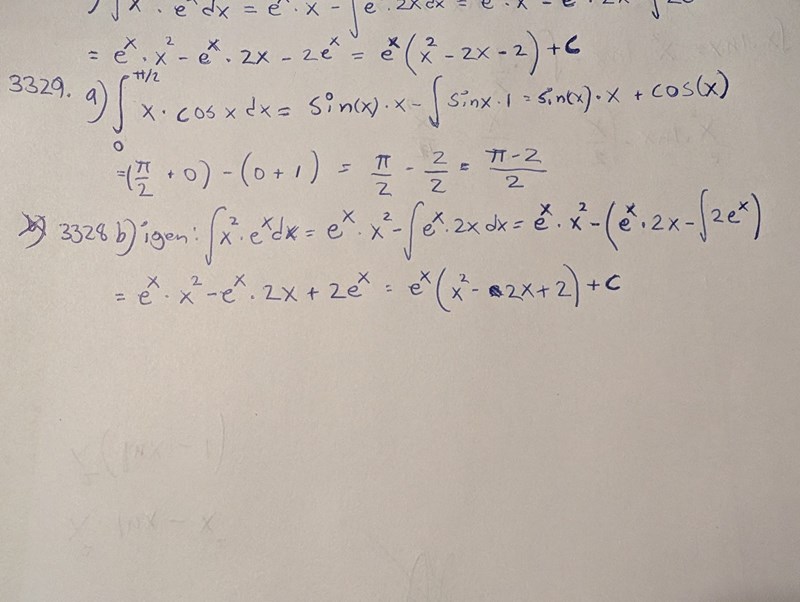 ∫x² · eˣ dx = eˣ · x² - ∫eˣ · 2x dx = eˣ · x² - eˣ · 2x
= eˣ · x² - eˣ · 2x - 2eˣ = eˣ(x² - 2x - 2) + C
3329. a) ∫₀^(π/2) x · cos x dx = sin(x) · x - ∫sin x · 1 = sin(x) · x + cos(x)
= (π/2 + 0) - (0 + 1) = π/2 - 2/2 = (π-2)/2
3328 b) igen: ∫x² · eˣ dx = eˣ · x² - ∫eˣ · 2x dx = eˣ · x² - (eˣ · 2x - ∫2eˣ)
= eˣ · x² - eˣ · 2x + 2eˣ = eˣ(x² - 2x + 2) + C